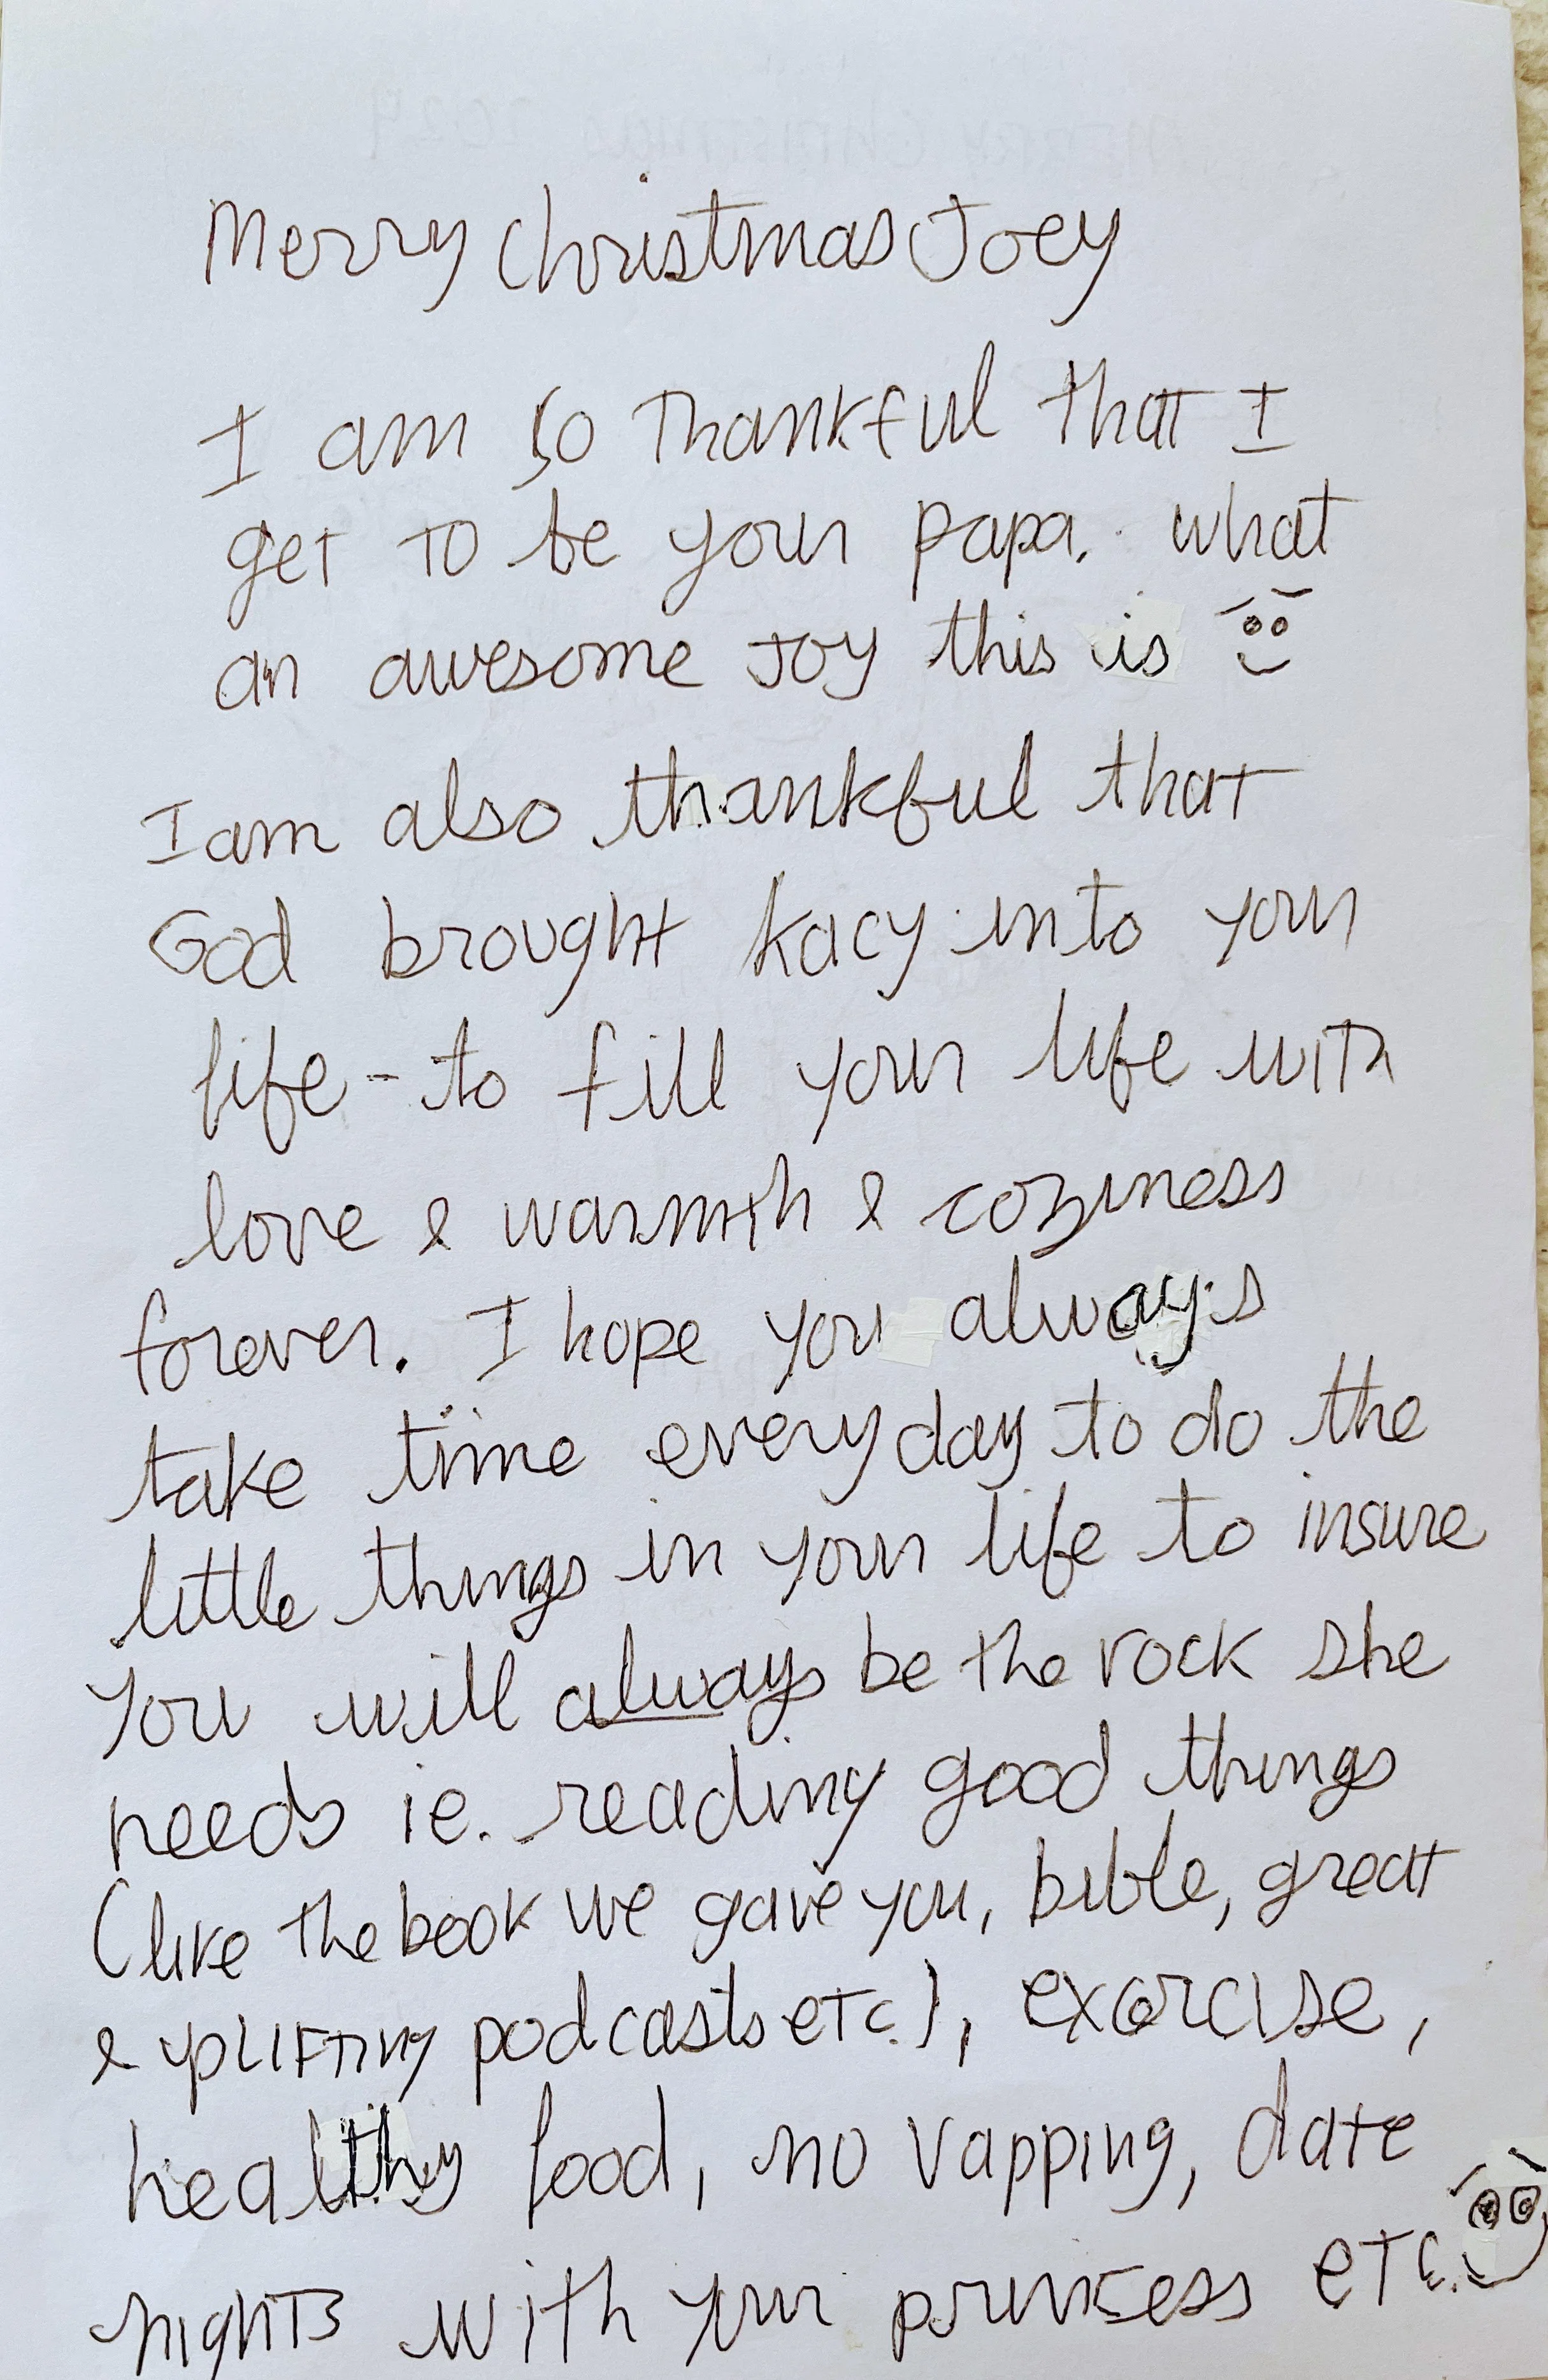 Merry Christmas Joey
I am so thankful that I
get to be your papa. what
an awesome Joy this is
I am also thankful that
God brought Kacy into your
life - to fill your life with
love & warmth & coziness
forever. I hope you always
take time everyday to do the
little things in your life to insure
you will always be the rock she
needs ie. reading good things
(like the book we gave you, bible, great
& uplifting podcasts etc.), exercise,
healthy food, no vapping, date
nights with your princess etc.